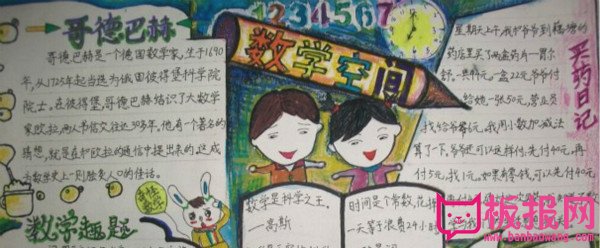 哥德巴赫
哥德巴赫是个德国数学家,生于1690
年,从1725年起当选为俄国彼得堡科学院
院士。在彼得堡,哥德巴赫结识了大数学
家欧拉,两人书信交往达30多年。他有一个著名的
猜想,就是在和欧拉的通信中提出来的,这成
为数学史上一则脍炙人口的佳话。
数学趣题
1234567
数学空间
数学是科学之王。
—高斯
时间是个常数,花掉
一天等于浪费24小时
买药日记
星期天上午,我和爷爷到
药店里买了两盒药一胃
舒,一盒
一盒22元,爷爷付
给她一张50元,营业员
找给爷爷5元,我用小数加减法
算了一下,爷爷还可以这样付:先付40元,再
付5元,找1元,如果有零钱,可以先付40元
板报网
www.banbaowang.com